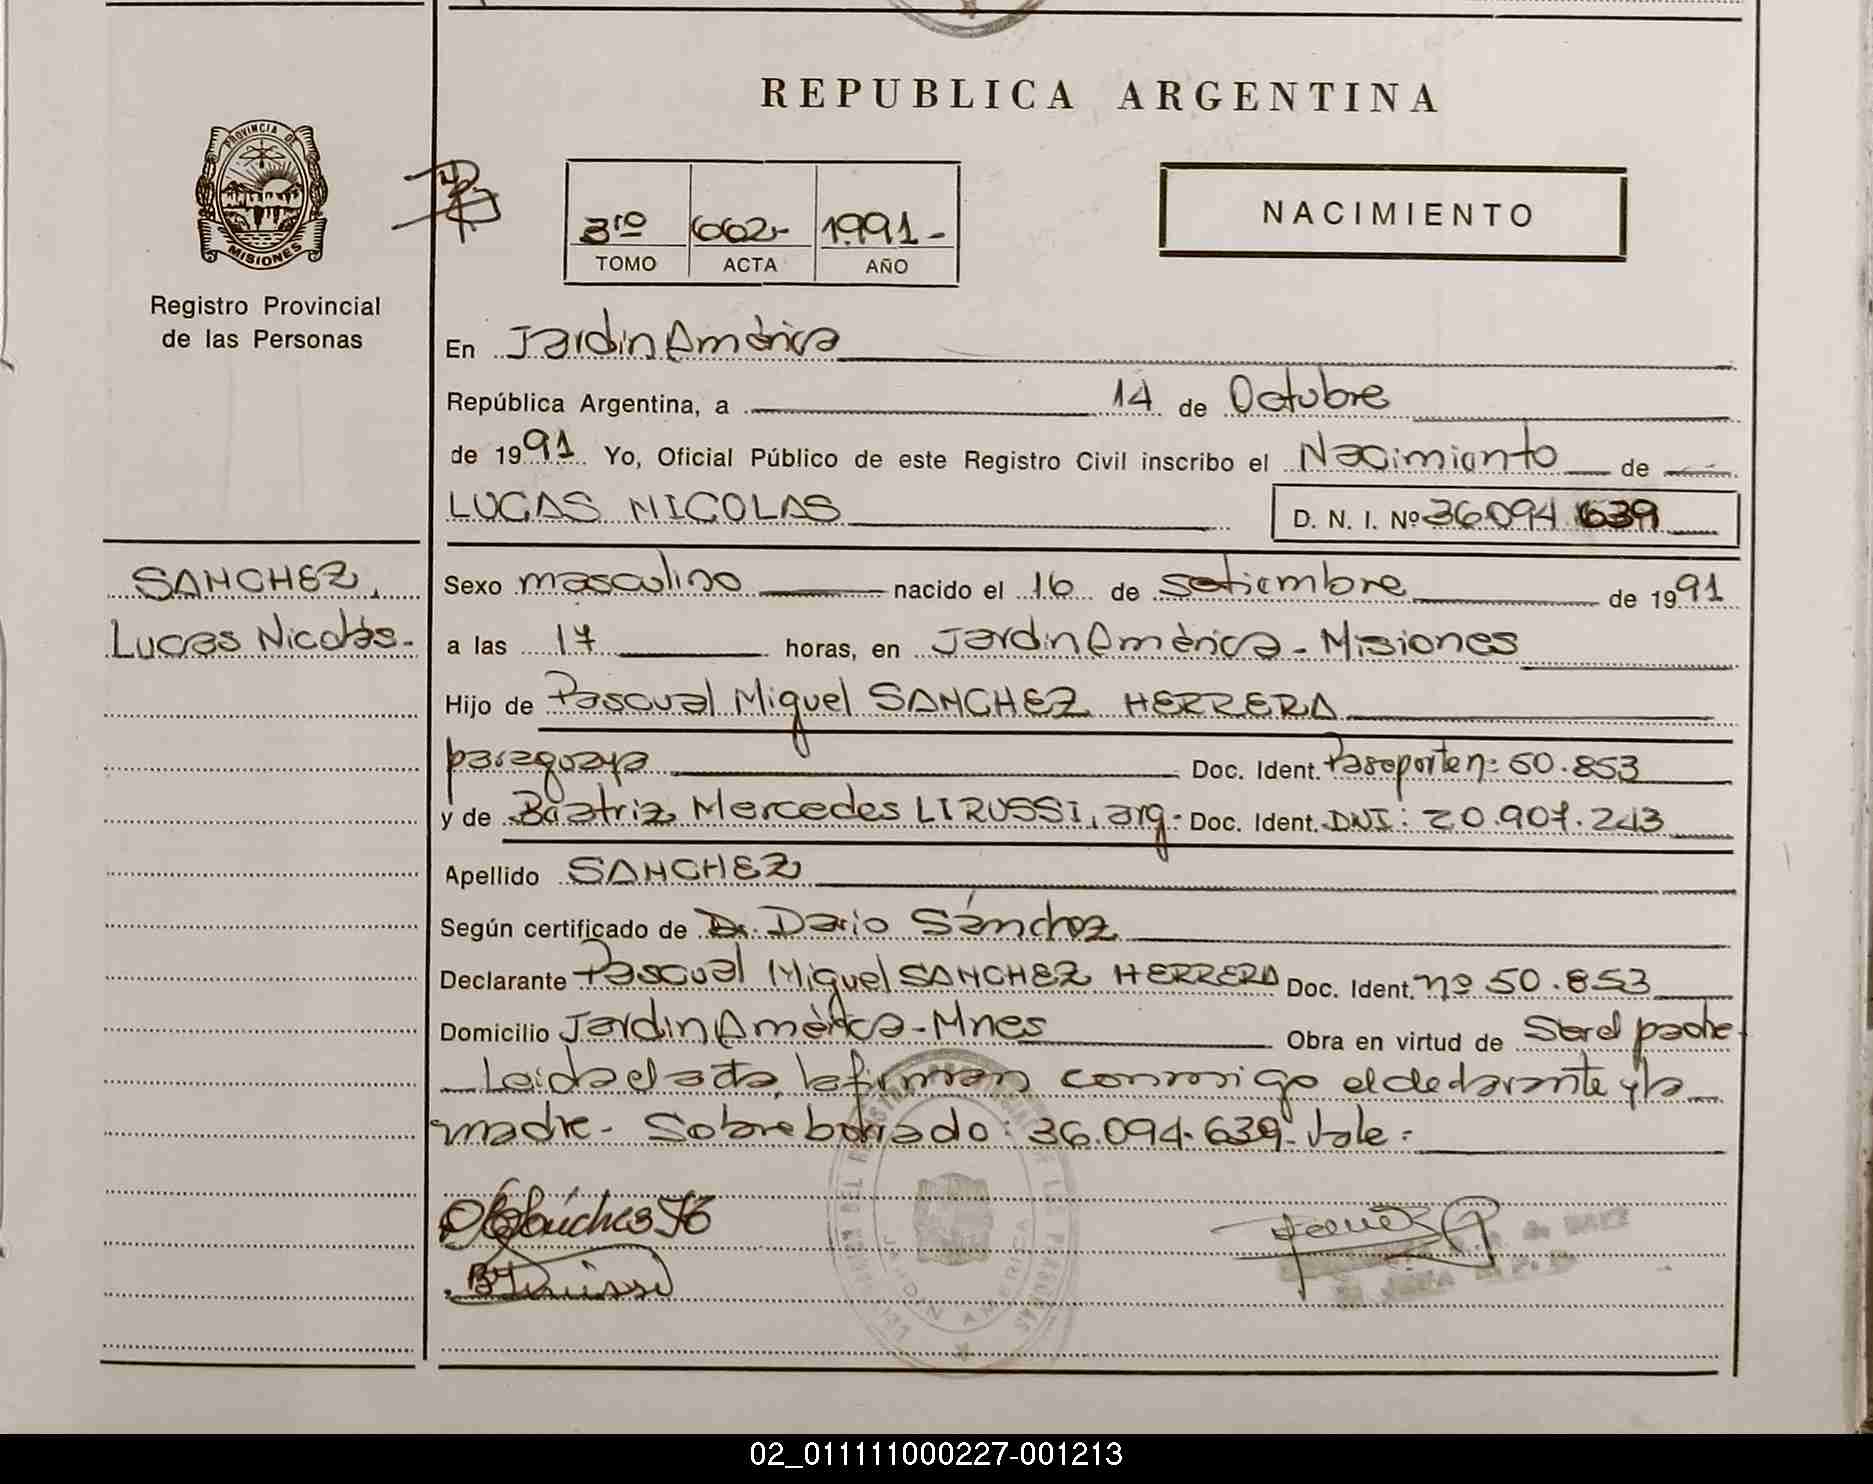 REPUBLICA ARGENTINA
PROVINCIA DE
MISIONES
Registro Provincial
de las Personas
3ro 662- 1991-
TOMO ACTA AÑO
NACIMIENTO
En Jardin América
República Argentina, a 14 de Octubre
de 1991 Yo, Oficial Público de este Registro Civil inscribo el Nacimiento de
LUCAS NICOLAS D. N. I. Nº 36094 639
SANCHEZ,
Lucas Nicolás-
Sexo masculino nacido el 16 de setiembre de 1991
a las 17 horas, en Jardin América - Misiones
Hijo de Pascual Miguel SANCHEZ HERRERA
paraguaya Doc. Ident. Pasaporte nº 50.853
y de Beatriz Mercedes LIRUSSI, arg. Doc. Ident. DNI: 20.907.243
Apellido SANCHEZ
Según certificado de Dr. Dario Sánchez
Declarante Pascual Miguel SANCHEZ HERRERA Doc. Ident. nº 50.853
Domicilio Jardin América - Mnes Obra en virtud de Ser el padre.
Leida el acta, la firman conmigo el declarante y la
madre. Sobreborrado: 36.094.639. Vale.
JARDIN AMERICA
02_011111000227-001213